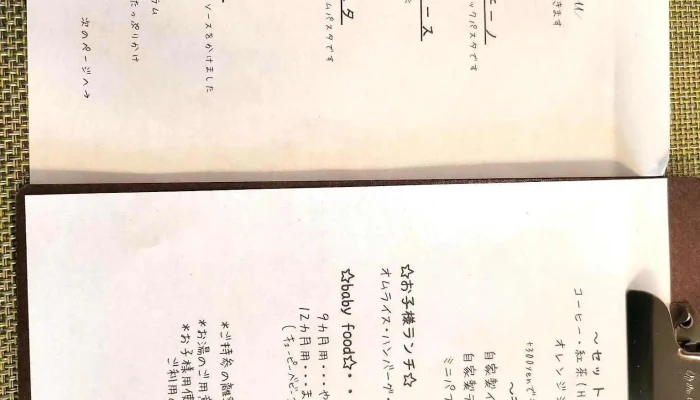 きます
ニーノ
ックパスタです
ース
タ
ムパスタです
ソースをかけました
ラム
たっぷりかけ
次のページへ→
～セット
コーヒー・紅茶(H
オレンジジ
+300yenで
自家製イ
自家製ラ
ミニパフ
☆お子様ランチ☆
オムライス・ハンバーグ・
☆baby food☆・・
9カ月用・・・や
12カ月用・・ま
(キューピーベビー
*ご持参の離乳
*お湯のご用意
*お子様用使
ご利用